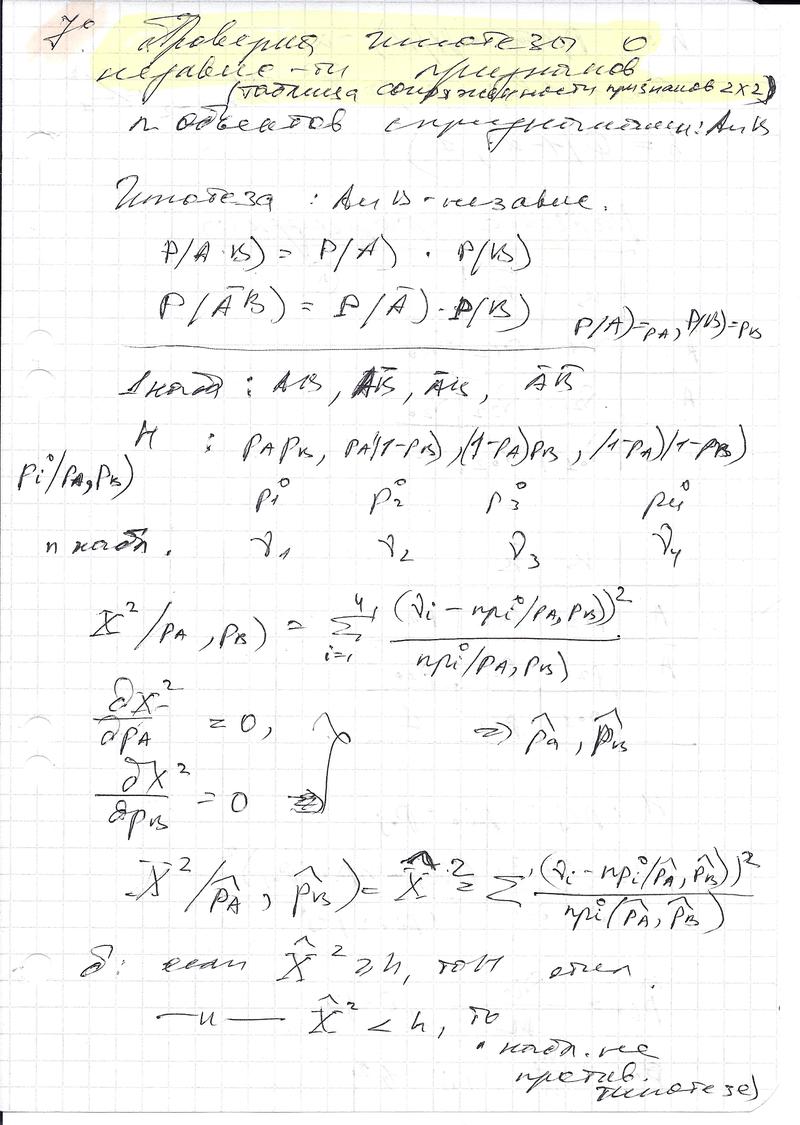 7° Проверка гипотезы о
независ-ти признаков
(таблица сопряженности признаков 2×2)
n объектов с признаками: A и B
Гипотеза : A и B - независ.
P(A·B) = P(A) · P(B)
P(ĀB) = P(Ā) · P(B)
P(A)=pA, P(B)=pB
1 набл : AB, AB̄, ĀB, ĀB̄
H : pApB, pA(1-pB), (1-pA)pB, (1-pA)(1-pB)
pi°(pA,pB)
p1° p2° p3° p4°
n набл. ν1 ν2 ν3 ν4
X²(pA, pB) = Σ i=1 4 (νi - npi°(pA,pB))² / npi°(pA,pB)
∂X²/∂pA = 0,
⇒ p̂A, p̂B
∂X²/∂pB = 0
X²(p̂A, p̂B) = X̂² = Σ (νi - npi°(p̂A, p̂B))² / npi°(p̂A, p̂B)
δ: если X̂² ≥ h, то H откл.
—"— X̂² < h, то
набл. не
против.
гипотезе)